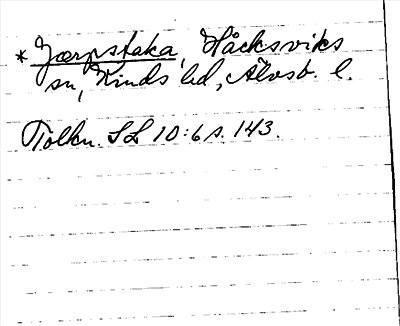 * Jærpstaka, Håcksviks
sn, Kinds hd, Älvsb. l.
Tolkn. SL 10:6 s. 143.